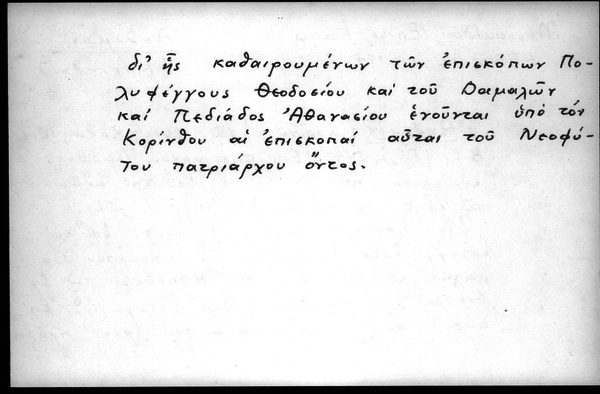 δι' ἧς καθαιρουμένων τῶν ἐπισκόπων Πο-
λυφέγγους Θεοδοσίου καὶ τοῦ Δαμαλῶν
καὶ Πεδιάδος Ἀθανασίου ἑνοῦνται ὑπὸ τὸν
Κορίνθου αἱ ἐπισκοπαί αὗται τοῦ Νεοφύ-
του πατριάρχου ὄντος.